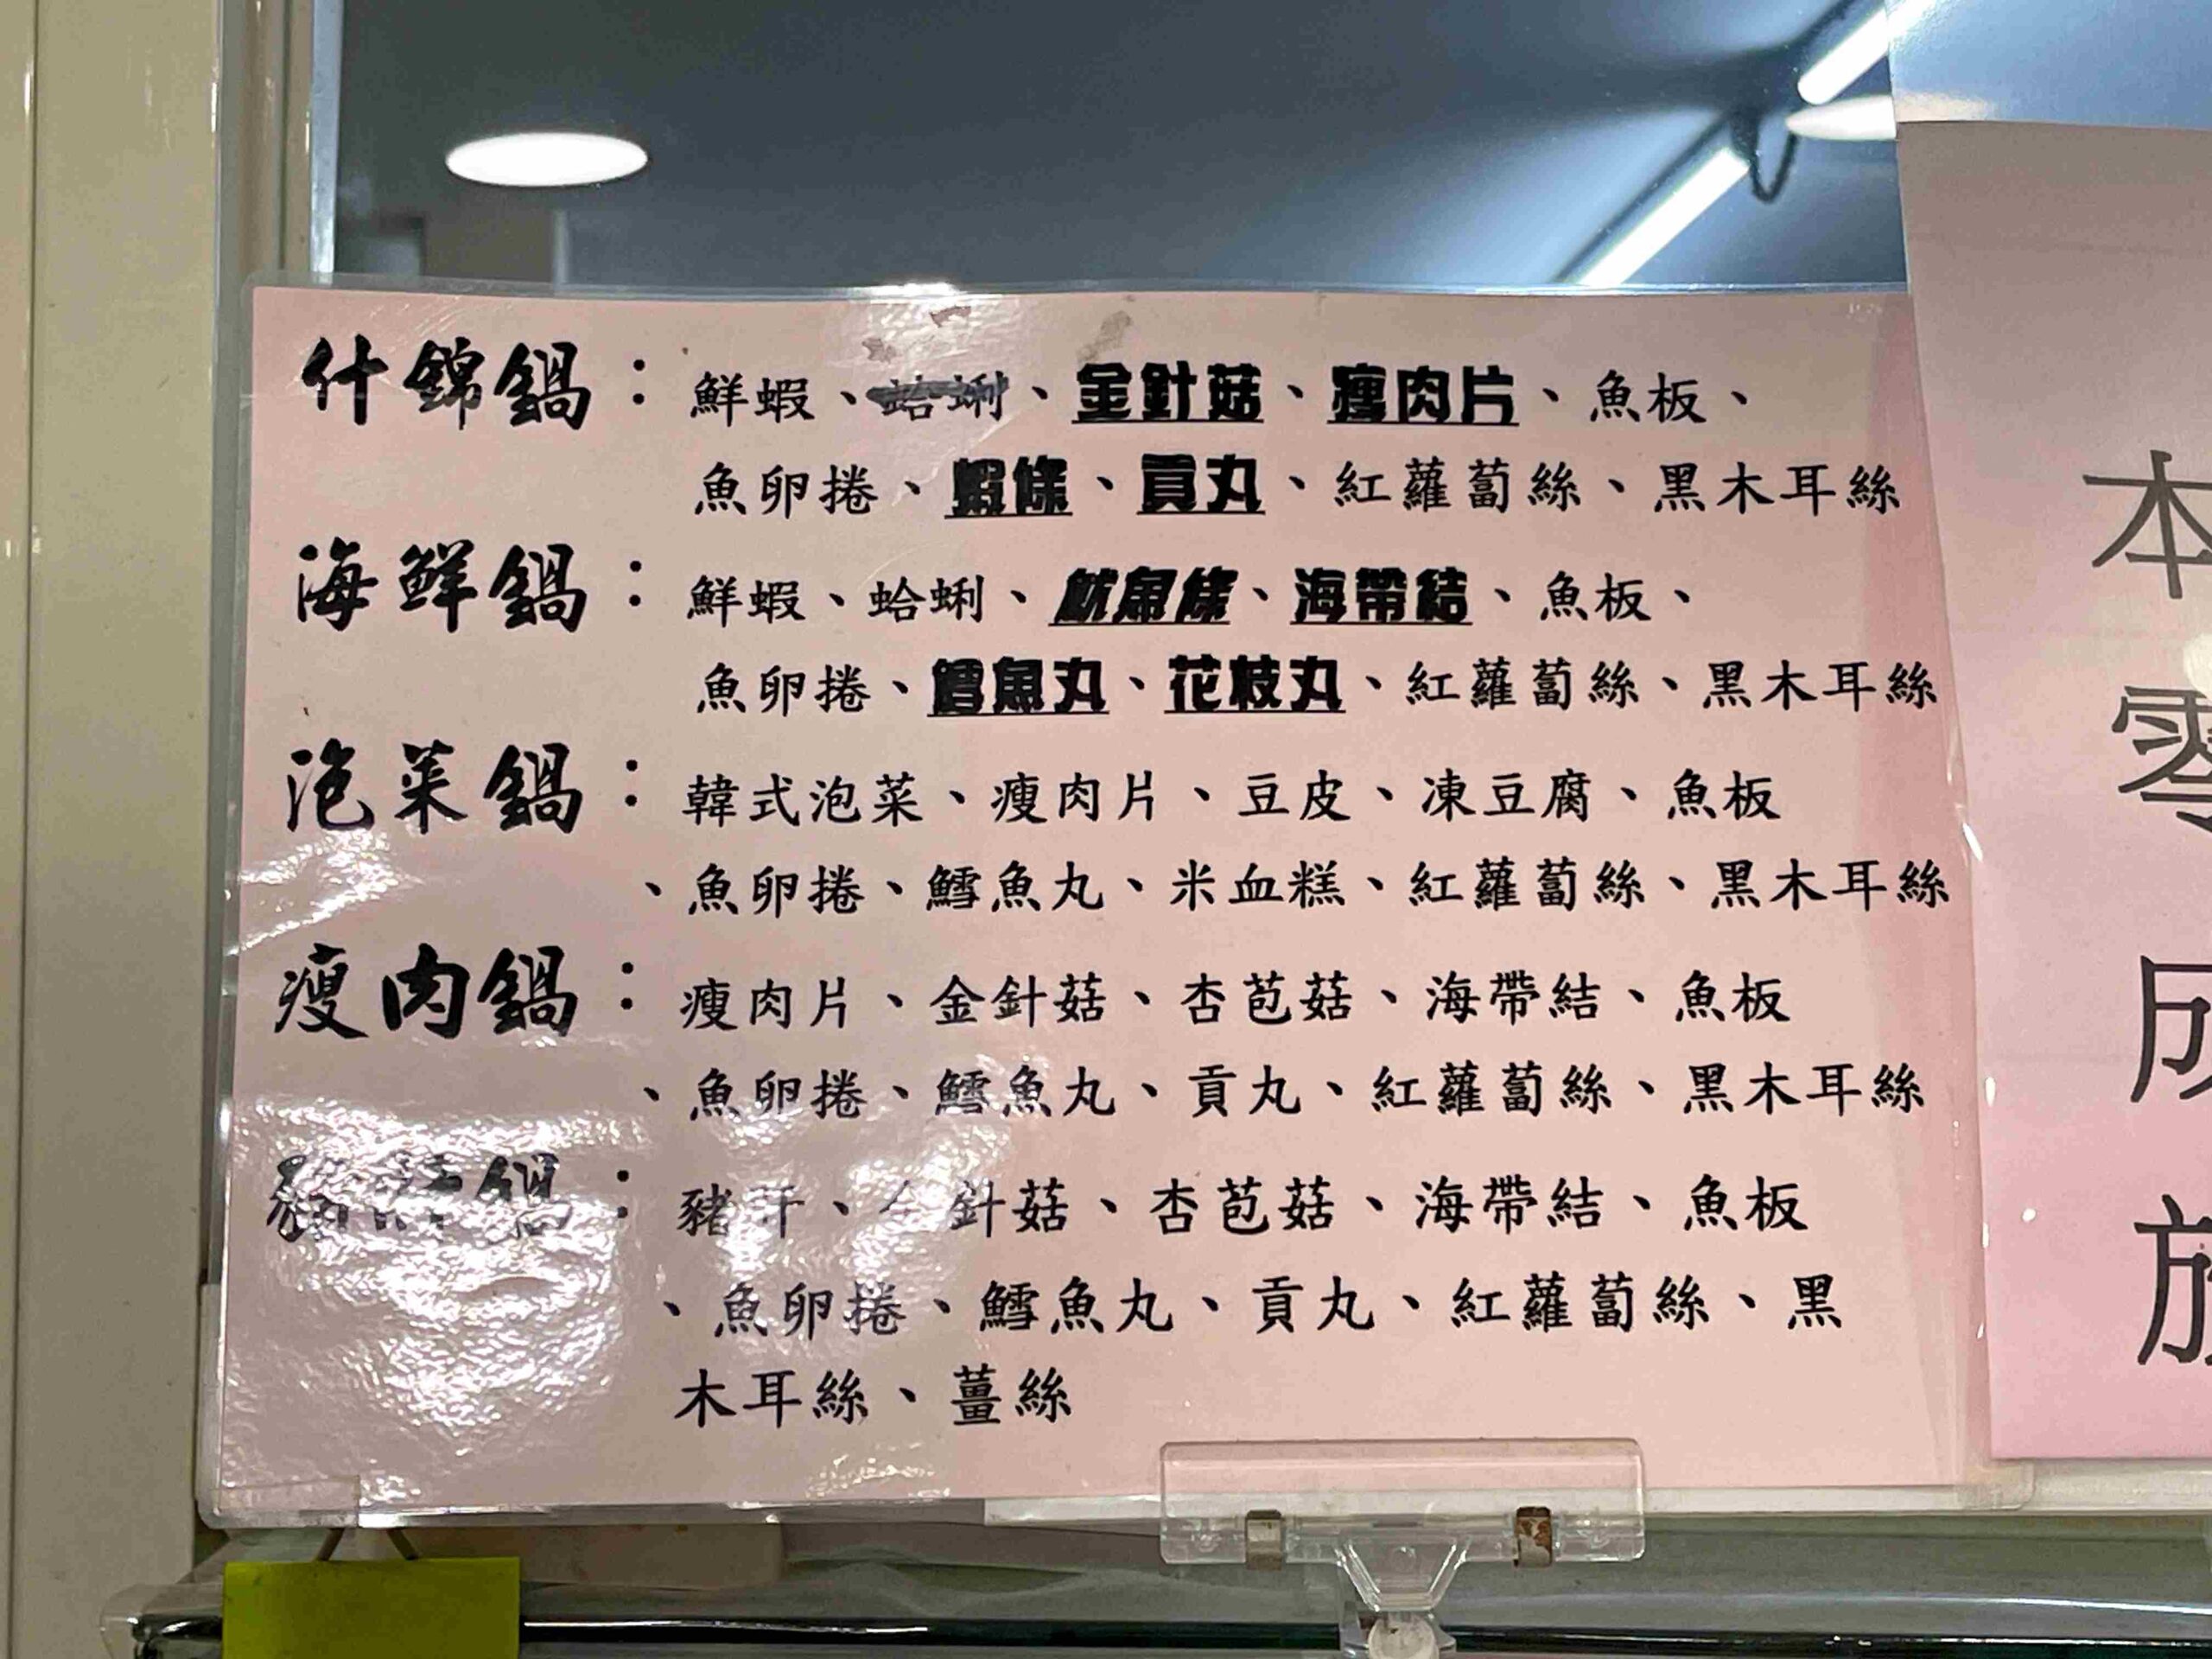 什錦鍋：鮮蝦、蛤蜊、金針菇、瘦肉片、魚板、
魚卵捲、蝦條、貢丸、紅蘿蔔絲、黑木耳絲
海鮮鍋：鮮蝦、蛤蜊、魷魚條、海帶結、魚板、
魚卵捲、鱈魚丸、花枝丸、紅蘿蔔絲、黑木耳絲
泡菜鍋：韓式泡菜、瘦肉片、豆皮、凍豆腐、魚板
、魚卵捲、鱈魚丸、米血糕、紅蘿蔔絲、黑木耳絲
瘦肉鍋：瘦肉片、金針菇、杏苞菇、海帶結、魚板
、魚卵捲、鱈魚丸、貢丸、紅蘿蔔絲、黑木耳絲
豬肝鍋：豬肝、金針菇、杏苞菇、海帶結、魚板
、魚卵捲、鱈魚丸、貢丸、紅蘿蔔絲、黑
木耳絲、薑絲
本
零